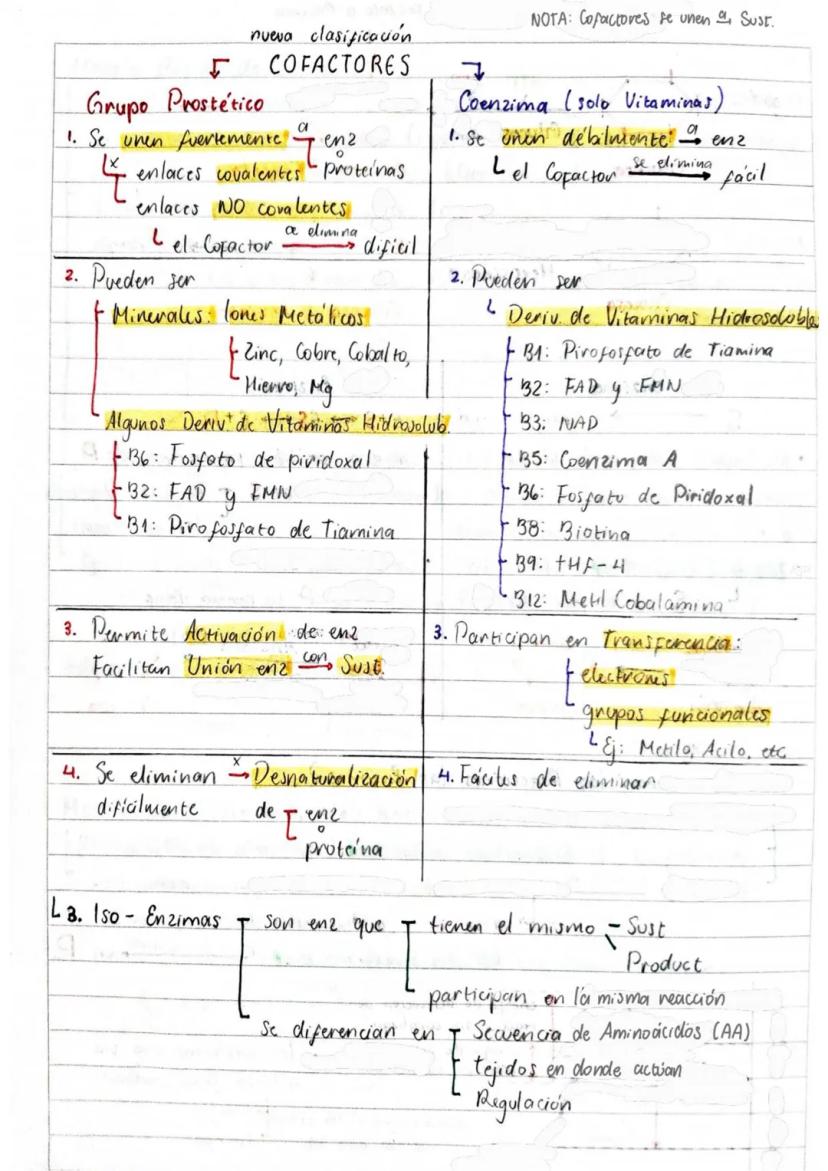 NOTA: Cofactores se unen a Sust.
nueva clasificación
COFACTORES
Grupo Prostético
1. Se unen fuertemente a enz
o
x enlaces covalentes proteínas
enlaces NO covalentes
el Cofactor se elimina dificil
2. Pueden ser
Minerales: Iones Metálicos
Zinc, Cobre, Cobalto,
Hierro, Mg
Algunos Deriv. de Vitaminas Hidrosolub.
B6: Fosfato de piridoxal
B2: FAD y FMN
B1: Pirofosfato de Tiamina
3. Permite Activación de enz
Facilitan Unión enz con Sust.
4. Se eliminan x Desnaturalización
dificilmente de enz
o
proteína
Coenzima (solo Vitaminas)
1. Se unen débilmente a enz
el Cofactor se elimina fácil
2. Pueden ser
Deriv. de Vitaminas Hidrosolubles
B1: Pirofosfato de Tiamina
B2: FAD y FMN
B3: NAD
B5: Coenzima A
B6: Fosfato de Piridoxal
B8: Biotina
B9: tHF-4
B12: Metil Cobalamina
3. Participan en Transferencia:
electrones
grupos funcionales
Ej: Metilo, Acilo, etc
4. Fáciles de eliminar
3. Iso-Enzimas son enz que tienen el mismo - Sust
Product
participan en la misma reacción
se diferencian en Secuencia de Aminoácidos (AA)
tejidos en donde actúan
Regulación